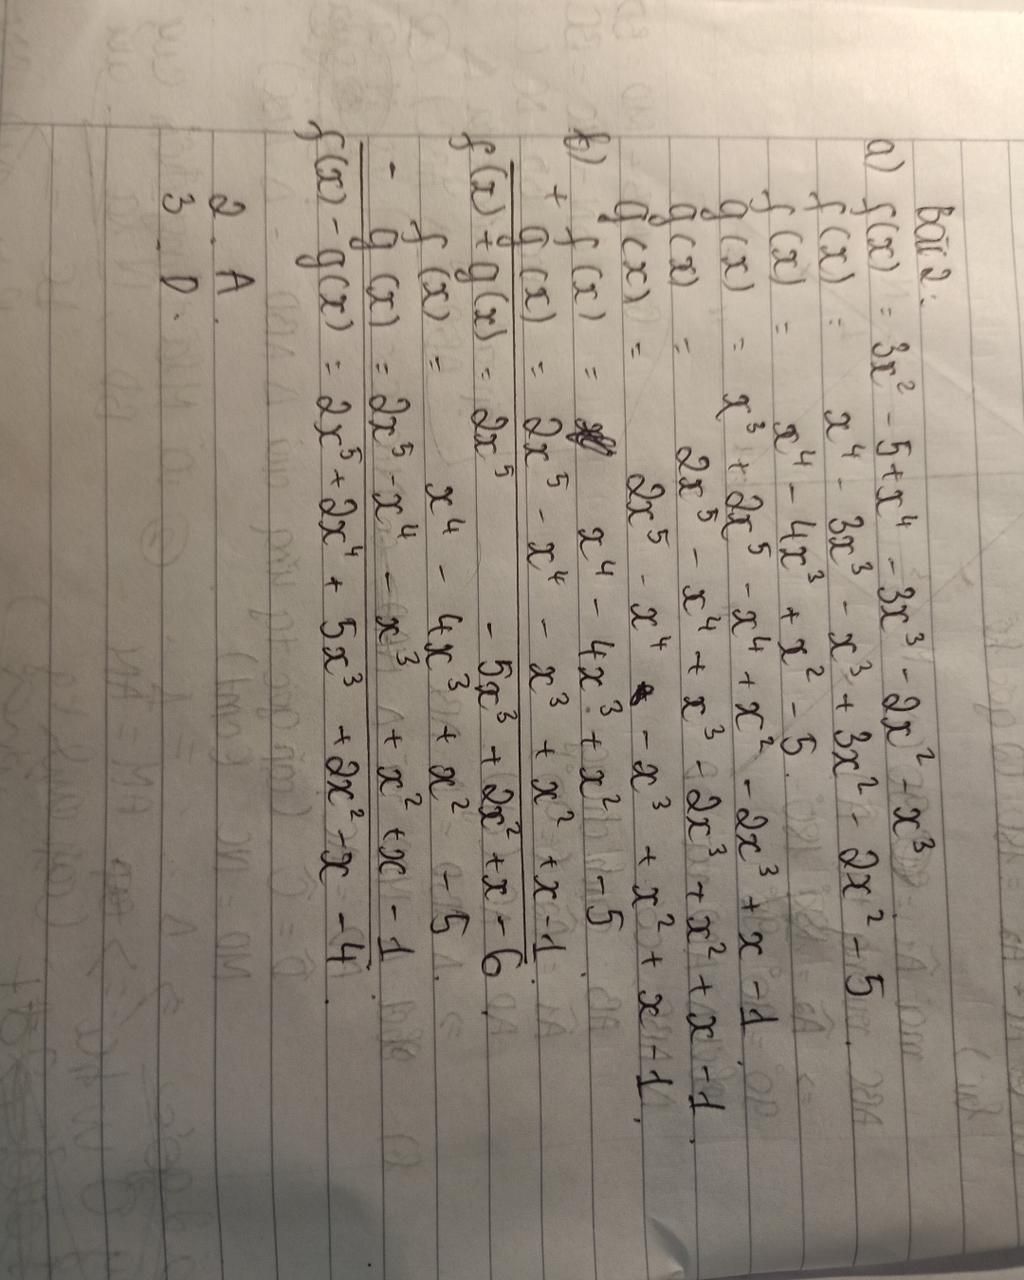 Bài 2:
a) f(x) = 3x² - 5 + x⁴ - 3x³ - 2x² - x³
f(x) = x⁴ - 3x³ - x³ + 3x² - 2x² - 5
f(x) = x⁴ - 4x³ + x² - 5.
g(x) = x³ + 2x⁵ - x⁴ + x² - 2x³ + x - 1
g(x) = 2x⁵ - x⁴ + x³ - 2x³ + x² + x - 1.
g(x) = 2x⁵ - x⁴ - x³ + x² + x - 1.
b) f(x) = x⁴ - 4x³ + x² - 5
+ g(x) = 2x⁵ - x⁴ - x³ + x² + x - 1.
f(x) + g(x) = 2x⁵ - 5x³ + 2x² + x - 6
f(x) = x⁴ - 4x³ + x² - 5
- g(x) = 2x⁵ - x⁴ - x³ + x² + x - 1
f(x) - g(x) = 2x⁵ + 2x⁴ + 5x³ + 2x² - x - 4.
2. A.
3. D.